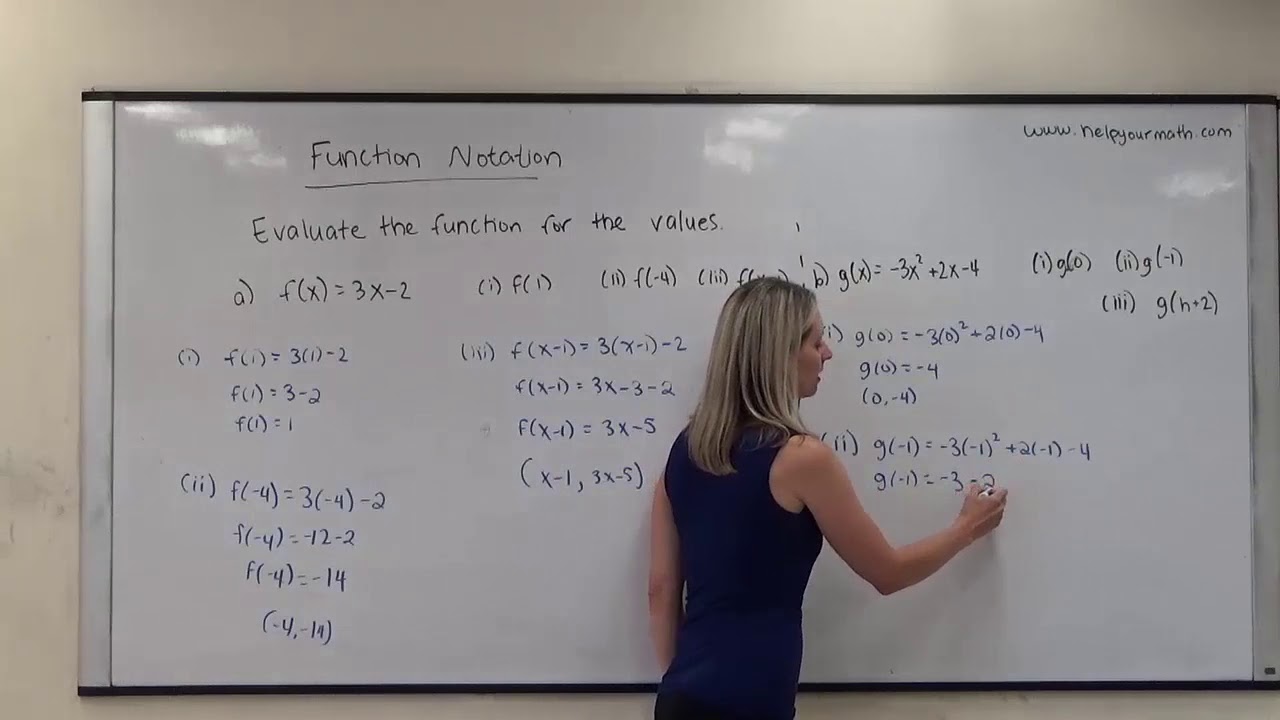 www.helpyourmath.com
Function Notation
Evaluate the function for the values.
a) f(x) = 3x-2 (i) f(1) (ii) f(-4) (iii)
b) g(x) = -3x² +2x-4 (i) g(0) (ii) g(-1)
(iii) g(h+2)
(i) f(1) = 3(1) -2
f(1) = 3-2
f(1) = 1
(ii) f(-4) = 3(-4) -2
f(-4) = -12-2
f(-4) = -14
(-4,-14)
(iii) f(x-1) = 3(x-1) -2
f(x-1) = 3x-3-2
f(x-1) = 3x-5
(x-1, 3x-5)
i) g(0) = -3(0)² +2(0) -4
g(0) = -4
(0,-4)
(ii) g(-1) = -3(-1)² +2(-1) -4
g(-1) = -3 -2